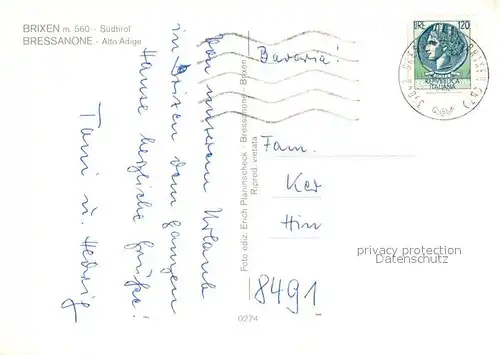 BRIXEN m. 560 - Südtirol
BRESSANONE - Alto Adige
Von unserem Urlaub
in Brixen dem ganzen
Hause herzliche Grüße!
Toni u. Hedwig
Foto ediz. Erich Planinscheck - Bressanone - Brixen
Riprod. vietata
LIRE 120
REPVBBLICA
ITALIANA
Bavaria!
Fam.
Ker
Him
8491
0274
privacy protection
Datenschutz